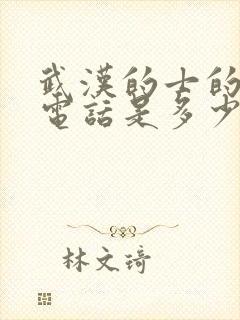 武漢的士的
電話是多少
林文琦